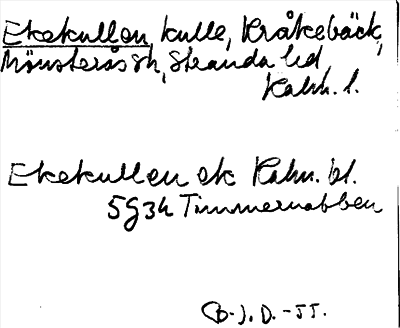 Ekekullen, kulle, Kråkebäck,
Mönsterås sn, Stranda hd,
Kalm. l.
Ekekullen ek Kalm. bl.
5G3h Timmernabben
B-J. D. -JT.